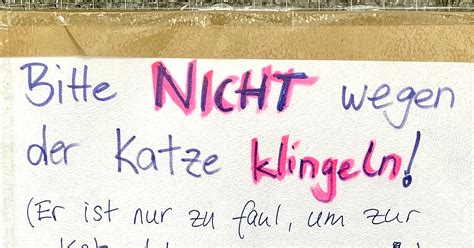 Bitte NICHT wegen
der Katze klingeln!
(Er ist nur zu faul, um zur